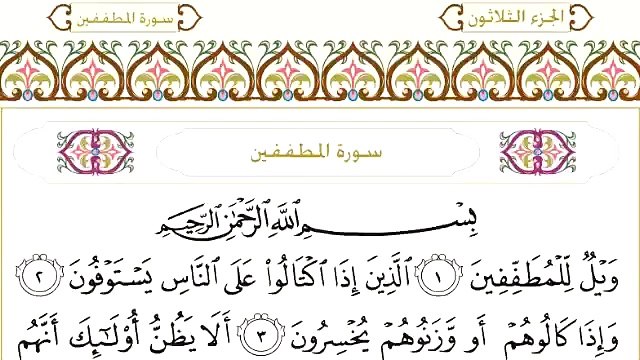 الجزء الثلاثون
سورة المطففين
سورة المطففين
بِسْمِ ٱللَّهِ ٱلرَّحْمَٰنِ ٱلرَّحِيمِ
وَيْلٌ لِّلْمُطَفِّفِينَ ١ ٱلَّذِينَ إِذَا ٱكْتَالُوا۟ عَلَى ٱلنَّاسِ يَسْتَوْفُونَ ٢
وَإِذَا كَالُوهُمْ أَو وَّزَنُوهُمْ يُخْسِرُونَ ٣ أَلَا يَظُنُّ أُو۟لَٰٓئِكَ أَنَّهُم